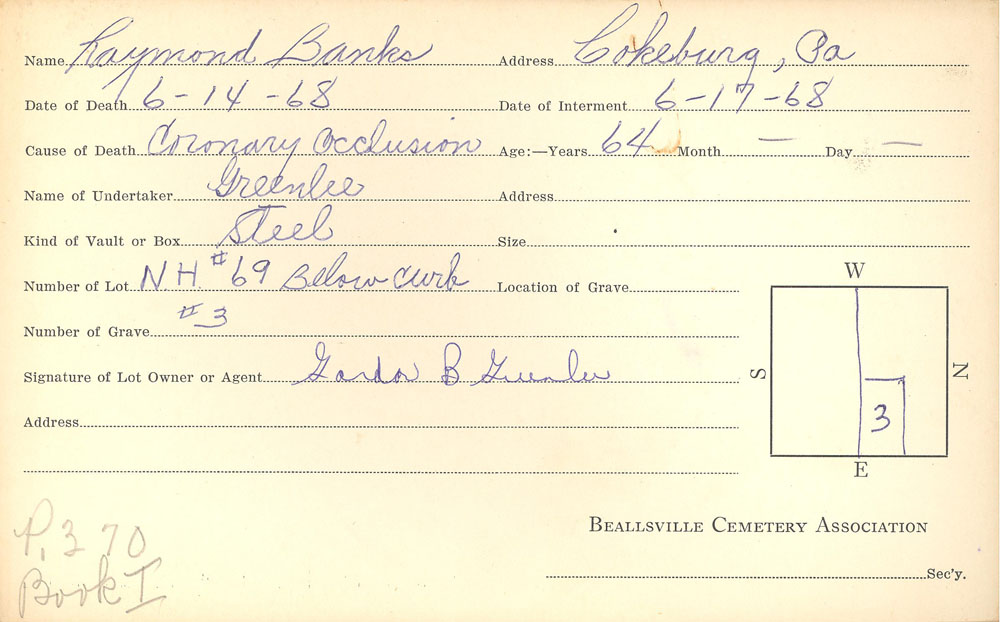 Name Raymond Banks Address Cokeburg, Pa
Date of Death 6-14-68 Date of Interment 6-17-68
Cause of Death Coronary Occlusion Age:—Years 64 Month — Day —
Name of Undertaker Greenlee Address
Kind of Vault or Box Steel Size
Number of Lot NH #69 Below Curb Location of Grave
Number of Grave #3
Signature of Lot Owner or Agent Gordon B Greenlee
Address
W
S
N
3
E
BEALLSVILLE CEMETERY ASSOCIATION
Sec'y.
P. 370
Book I